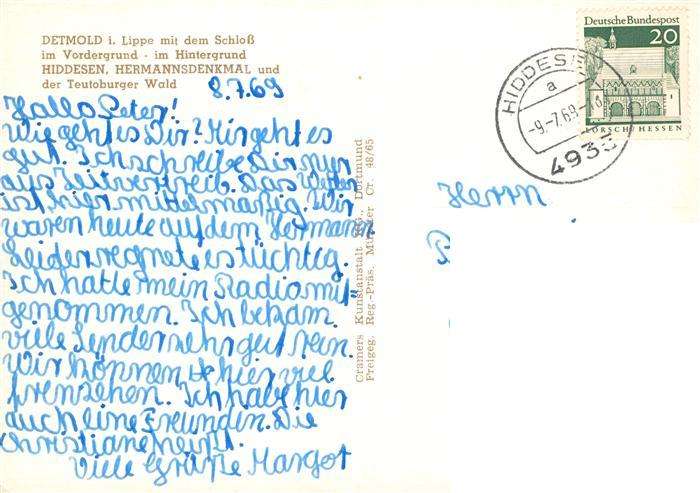 DETMOLD i. Lippe mit dem Schloß
im Vordergrund - im Hintergrund
HIDDESEN, HERMANNSDENKMAL und
der Teutoburger Wald
8.7.69
Hallo Peter!
Wie geht es Dir? Mir geht es
gut. Ich schreibe Dir nur
aus Zeitvertreib. Das Wetter
ist hier mittelmäßig. Wir
waren heute auf dem Hermann
Leider regnete es tüchtig.
Ich hatte mein Radio mit-
genommen. Ich bekam
viele Sender sehr gut rein.
Wir können hier viel
fernsehen. Ich habe hier
auch eine Freundin. Die
Christiane heißt.
Viele Grüße Margot
Cramers Kunstanstalt KG., Dortmund
Freigeg. Reg.-Präs. Münster Cr. 48/65
Deutsche Bundespost
20
LORSCH/HESSEN
HIDDESEN
a
-9.-7.69.-18
493
Herrn
P